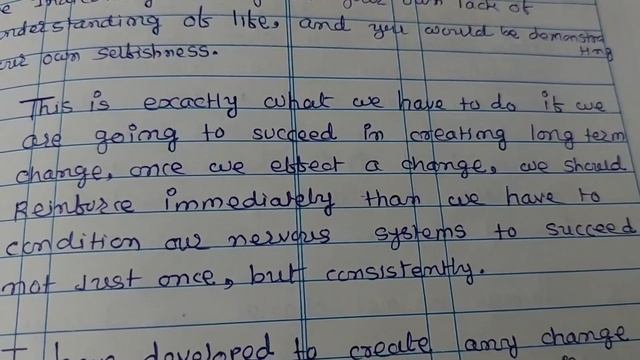 lack of
understanding of life, and you would be demonstrating
our own selfishness.
This is exactly what we have to do if we
are going to succeed in creating long term
change, once we effect a change, we should
Reinforce immediately than we have to
condition our nervous systems to succeed
not Just once, but consistently.
developed to create any change